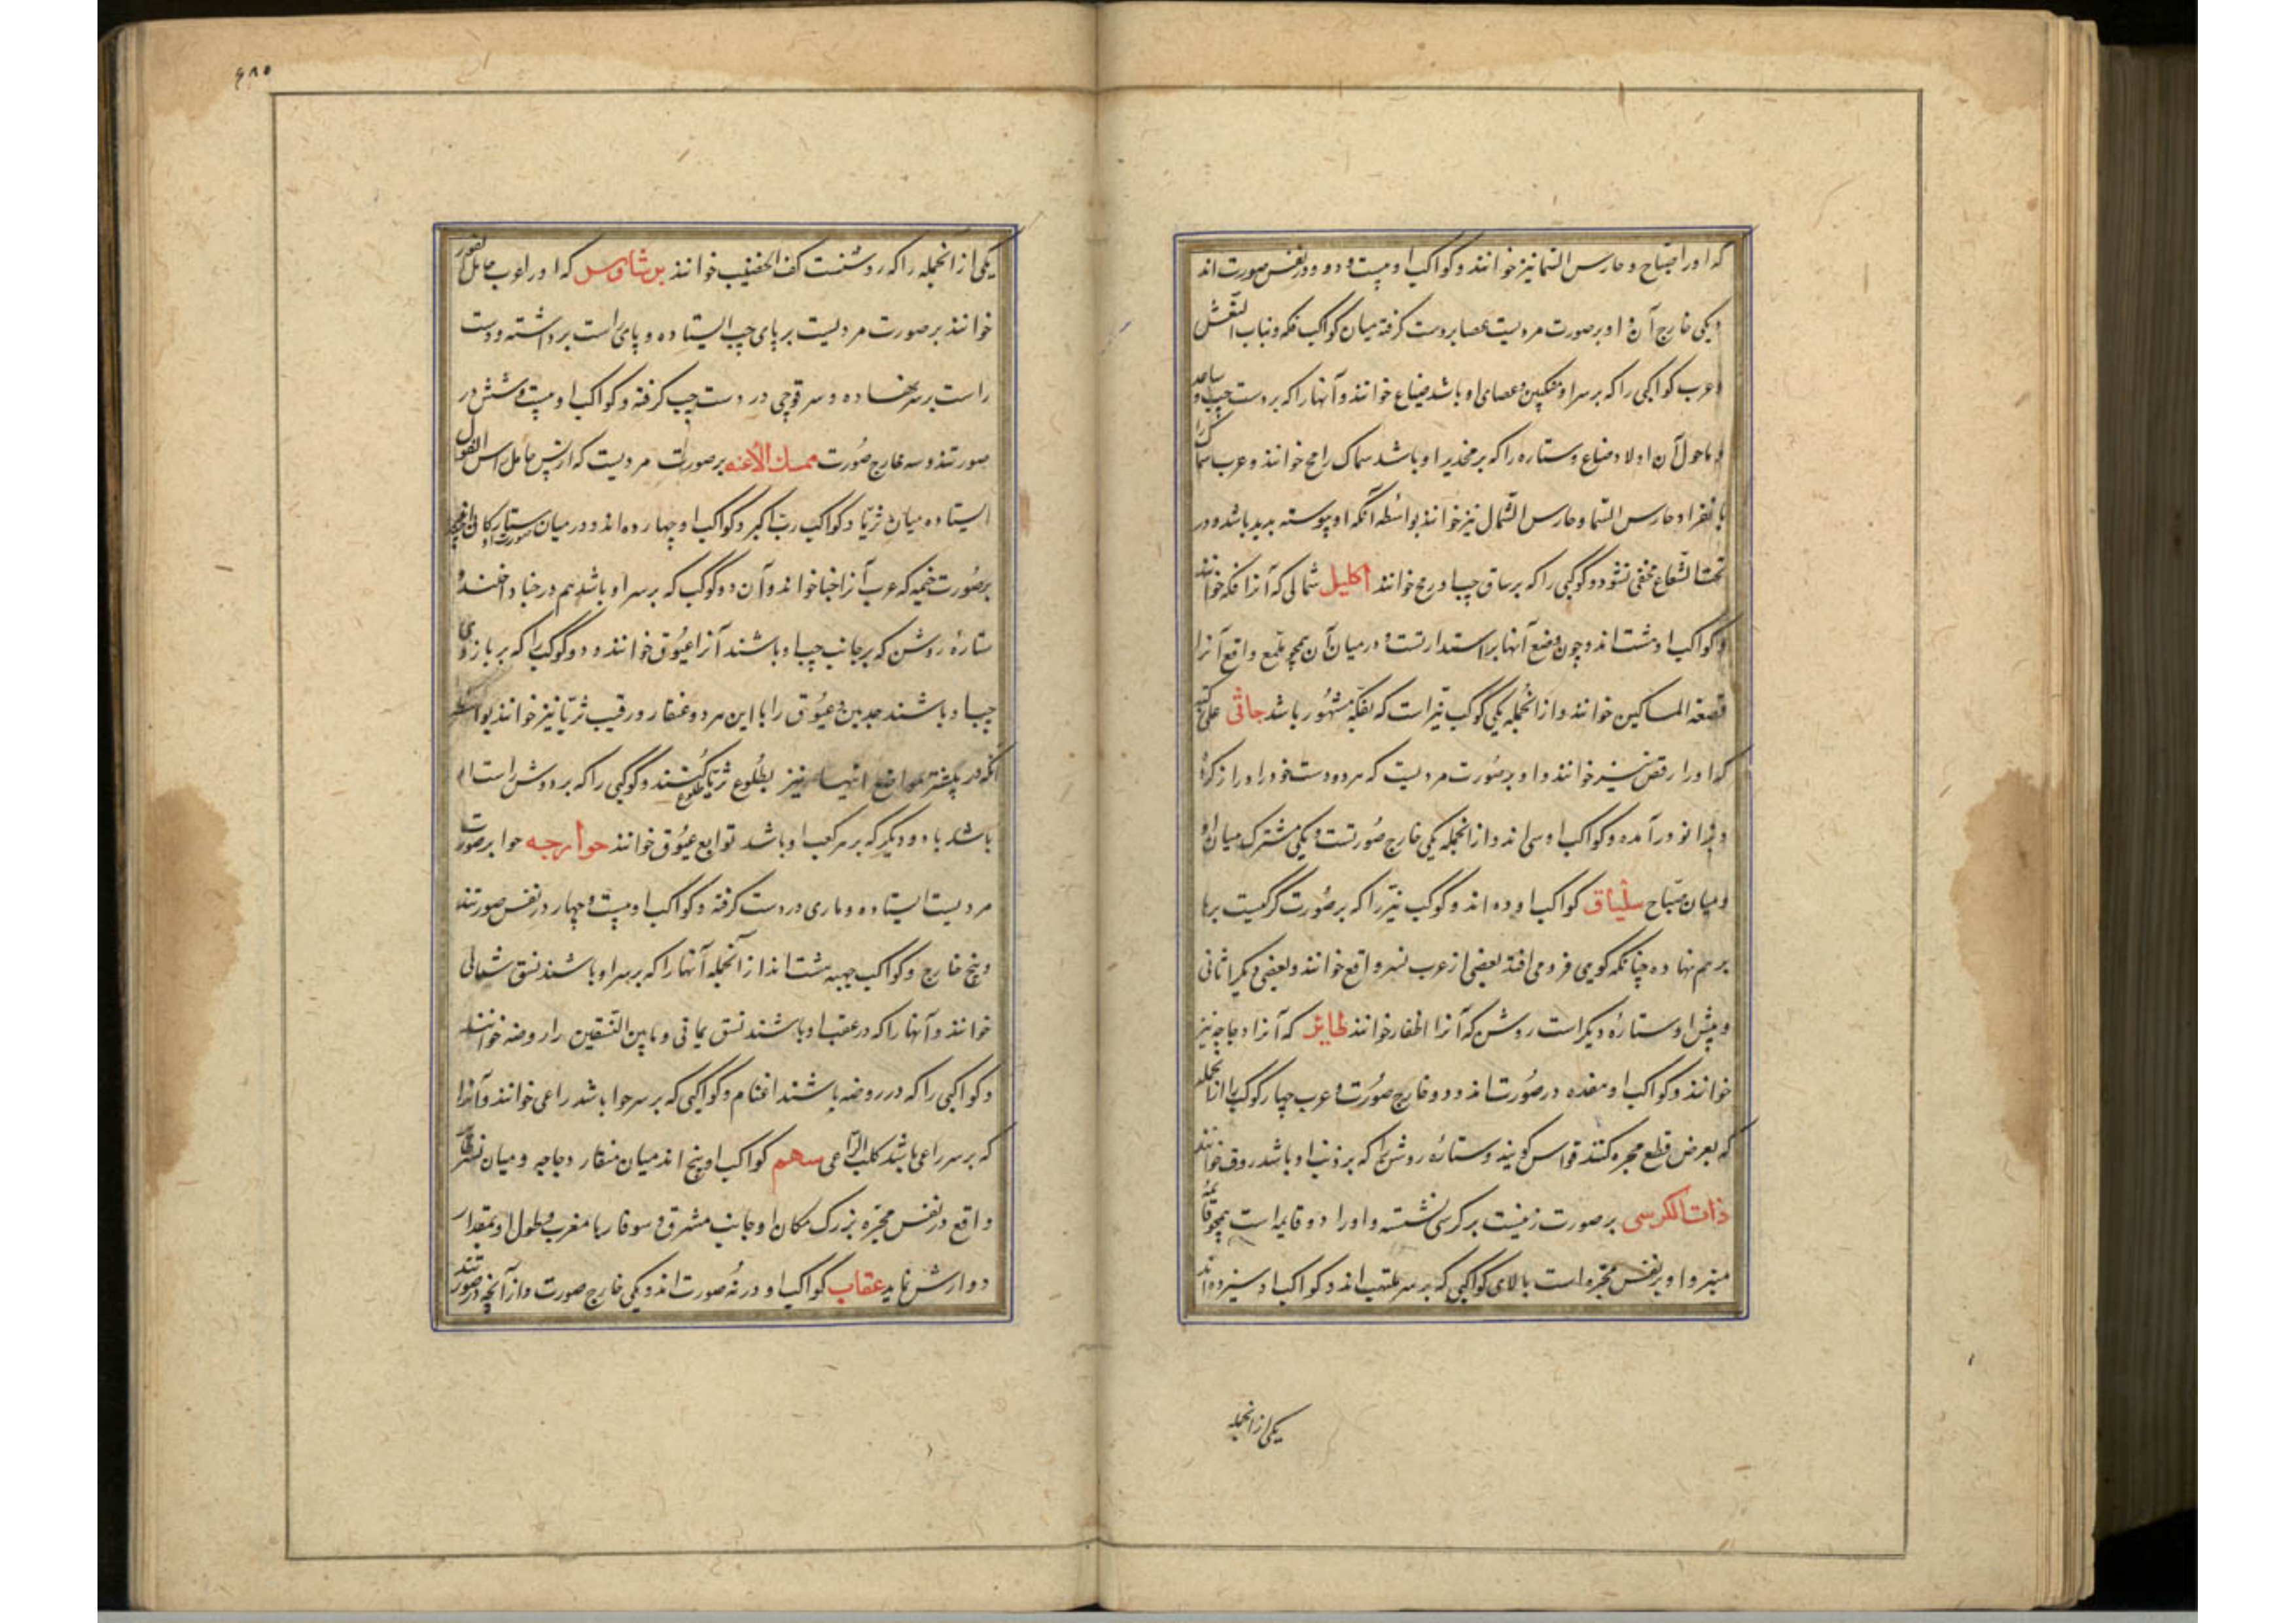 که اورا صیاح و حارس السما نیز خوانند و کواکب او بیست و دو در نفس صورت اند
و یکی خارج آن و او برصورت مردیست عصا بردست گرفته میان کواکب فکه و بنات النعش
و عرب کواکبی را که بر سر او و منکبین و عصای او باشد ضباع خوانند و آنها را که بر دست چپ و ساعد
و ماحول آن اولاد ضباع و ستاره را که بر فخذین او باشد سماک رامح خوانند و عرب سماک را
بانفراد حارس السما و حارس الشمال نیز خوانند بواسطه آنکه او پیوسته پدید باشد و در
تحت الشعاع مخفی نشود و کوکبی را که بر ساق چپ او رمح خوانند اکلیل شمالی که آنرا فکه خوانند
و کواکب او هشت اند و چون وضع آنها بر استدارتست و در میان آن همچو ثلمه واقع آنرا
قصعة المساکین خوانند و از آنجمله یکی کوکب نیر است که بفکه مشهور باشد جاثی علی رکبتیه
که اورا رقص نیز خوانند و او برصورت مردیست که هر دو دست خود را دراز کرده
و بزانو در آمده و کواکب او سی اند و از آنجمله یکی خارج صورتست و یکی مشترک میان او
و میان صیاح سلیاق کواکب او ده اند و کوکب نیر را که بر صورت کرکسیست پرها
برهم نهاده چنانکه گویی فرو می افتد بعضی از عرب نسر واقع خوانند و بعضی دیگر اثافی
و پیش او ستاره دیگر است روشن که آنرا اظفار خوانند طایر که آنرا دجاجه نیز
خوانند و کواکب او هفده در صورت اند و دو خارج صورت و عرب چهار کوکب را از آنجمله
که بعرض قطع مجره کنند فوارس گویند و ستاره روشن را که بر ذنب او باشد ردف خوانند
ذات الکرسی بر صورت زنیست بر کرسی نشسته و اورا دو قایمه است همچو قایمه
منبر و او بر نفس مجره است بالای کواکبی که بر سر ملتهب اند و کواکب او سیزده اند
یکی از آنجمله
۶۸۵
یکی از آنجمله را که روشنست کف الخضیب خوانند برشاوس که اورا عرب حامل
خوانند بر صورت مردیست بر پای چپ ایستاده و پای راست برداشته و دست
راست بر سر نهاده و سر قوچی در دست چپ گرفته و کواکب او بیست و شش در
صورتند و سه خارج صورت ممسک الأعنه بر صورت مردیست که از پس حامل رأس الغول
ایستاده میان ثریا و کواکب رب اکبر و کواکب او چهارده اند و در میان ستارگان
برصورت خیمه که عرب آنرا خبا خواند و آن دو کوکب که بر سر او باشد هم در خبا داخلند و
ستاره روشن که بر جانب چپ او باشند آنرا عیوق خوانند و دو کوکب را که بر بازوی
چپ او باشند جدیین و عیوق را با این هر دو عنقار و رقیب ثریا نیز خوانند بواسطه
آنکه در بیشتر مواضع اینها نیز بطلوع ثریا طلوع کنند و کوکبی را که بر دوش راست او
باشد با دو دیگر که بر هر کعب او باشد توابع عیوق خوانند حوا و حیه حوا بر صورت
مردیست ایستاده و ماری در دست گرفته و کواکب او بیست و چهار در نفس صورتند
و پنج خارج و کواکب حیه هشت اند از آنجمله آنها را که بر سر او باشند نسق شمالی
خوانند و آنها را که در عقب او باشند نسق یمانی و مابین النسقین را روضه خوانند
و کواکبی را که در روضه باشند اغنام و کواکبی که بر سر حوا باشد راعی خوانند و آنرا
که بر سر راعی باشد کلب الراعی سهم کواکب او پنج اند میان منقار دجاجه و میان نسر طایر
واقع در نفس مجره بزرگ مکان او جانب مشرق و سوفار با مغرب و طول او بمقدار
دو ارش نماید عقاب کواکب او در نه صورت اند و یکی خارج صورت و از آنچه در صورتند